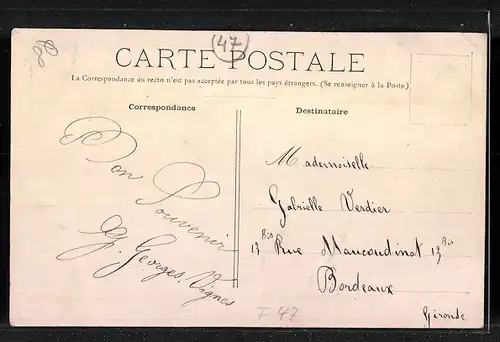 (47)
CARTE POSTALE
La Correspondance au recto n'est pas acceptée par tous les pays étrangers. (Se renseigner à la Poste)
Correspondance
Bon Souvenir
G. Georges. Vignes
Destinataire
Mademoiselle
Gabrielle Verdier
13 Bis Rue Maucoudinat 13 Bis
Bordeaux
Gironde
F 47